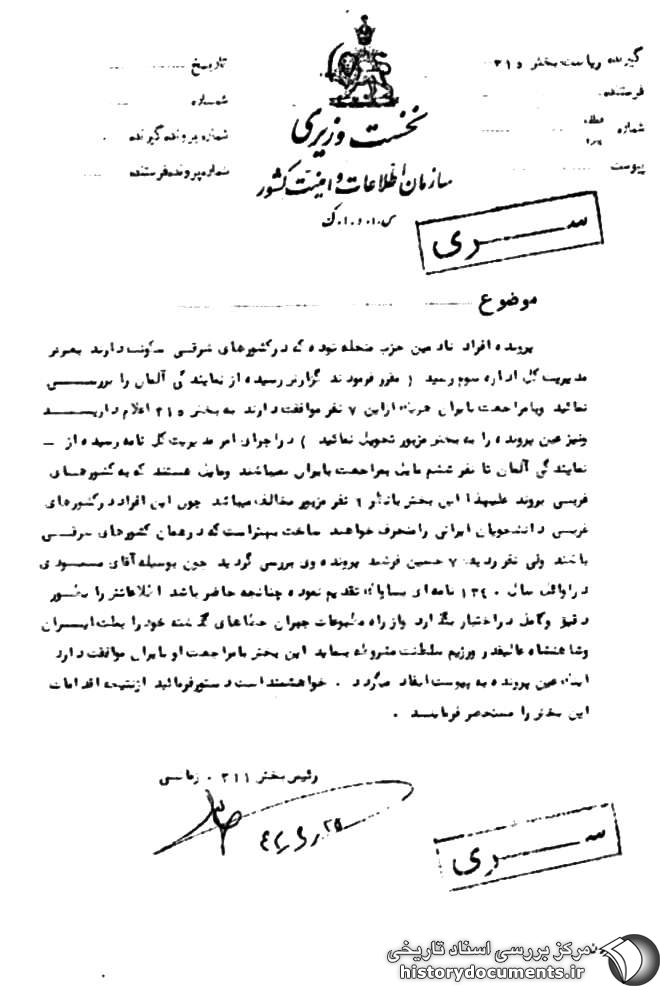 گیرنده ریاست بخش ۳۱۵
فرستنده
شماره
پیوست
تاریخ
شماره
شماره پرونده گیرنده
شماره پرونده فرستنده
نخست وزیری
سازمان اطلاعات و امنیت کشور
س.ا.و.ا.ک
سری
موضوع
پرونده افراد نادمین حزب منحله توده که در کشورهای شرقی سکونت دارند بعرض
مدیریت کل اداره سوم رسید ( مقرر فرمودند گزارش رسیده از نمایندگی آلمان را بررسی
نمائید وبا مراجعت بایران هریک ازاین ۷ نفر موافقت دارند به بخش ۳۱۵ اعلام دارید
ونیز عین پرونده را به بخش مزبور تحویل نمائید ) در اجرای امر مدیریت کل نامه رسیده از
نمایندگی آلمان تا نفر ششم مایل بمراجعت بایران نمیباشند ومایل هستند که به کشورهای
غربی بروند علیهذا این بخش با ۶ نفر مزبور مخالف میباشد چون این افراد در کشورهای
غربی دانشجویان ایرانی را منحرف خواهند ساخت بهتر است که در همان کشورهای شرقی
باشند ولی نفر ردیف ۷ حسین فرشید پرونده وی بررسی گردید چون بوسیله آقای مسعودی
در اوائل سال ۱۳۴۰ نامه‌ای تقدیم نموده چنانچه حاضر باشد اطلاعاتش را بطور
دقیق وکامل در اختیار بگذارد واز راه مطبوعات جبران خطاهای گذشته خود را بملت ایران
وشاهنشاه عالیقدر ورژیم سلطنت مشروطه بنماید این بخش با مراجعت او بایران موافقت دارد
اینک عین پرونده به پیوست ایفاد میگردد . خواهشمند است دستور فرمائید ازنتیجه اقدامات
این بخش را مستحضر فرمایند .
رئیس بخش ۳۱۱ .
۴۲٫۹٫۲۵
سری
مرکز بررسی اسناد تاریخی
historydocuments.ir